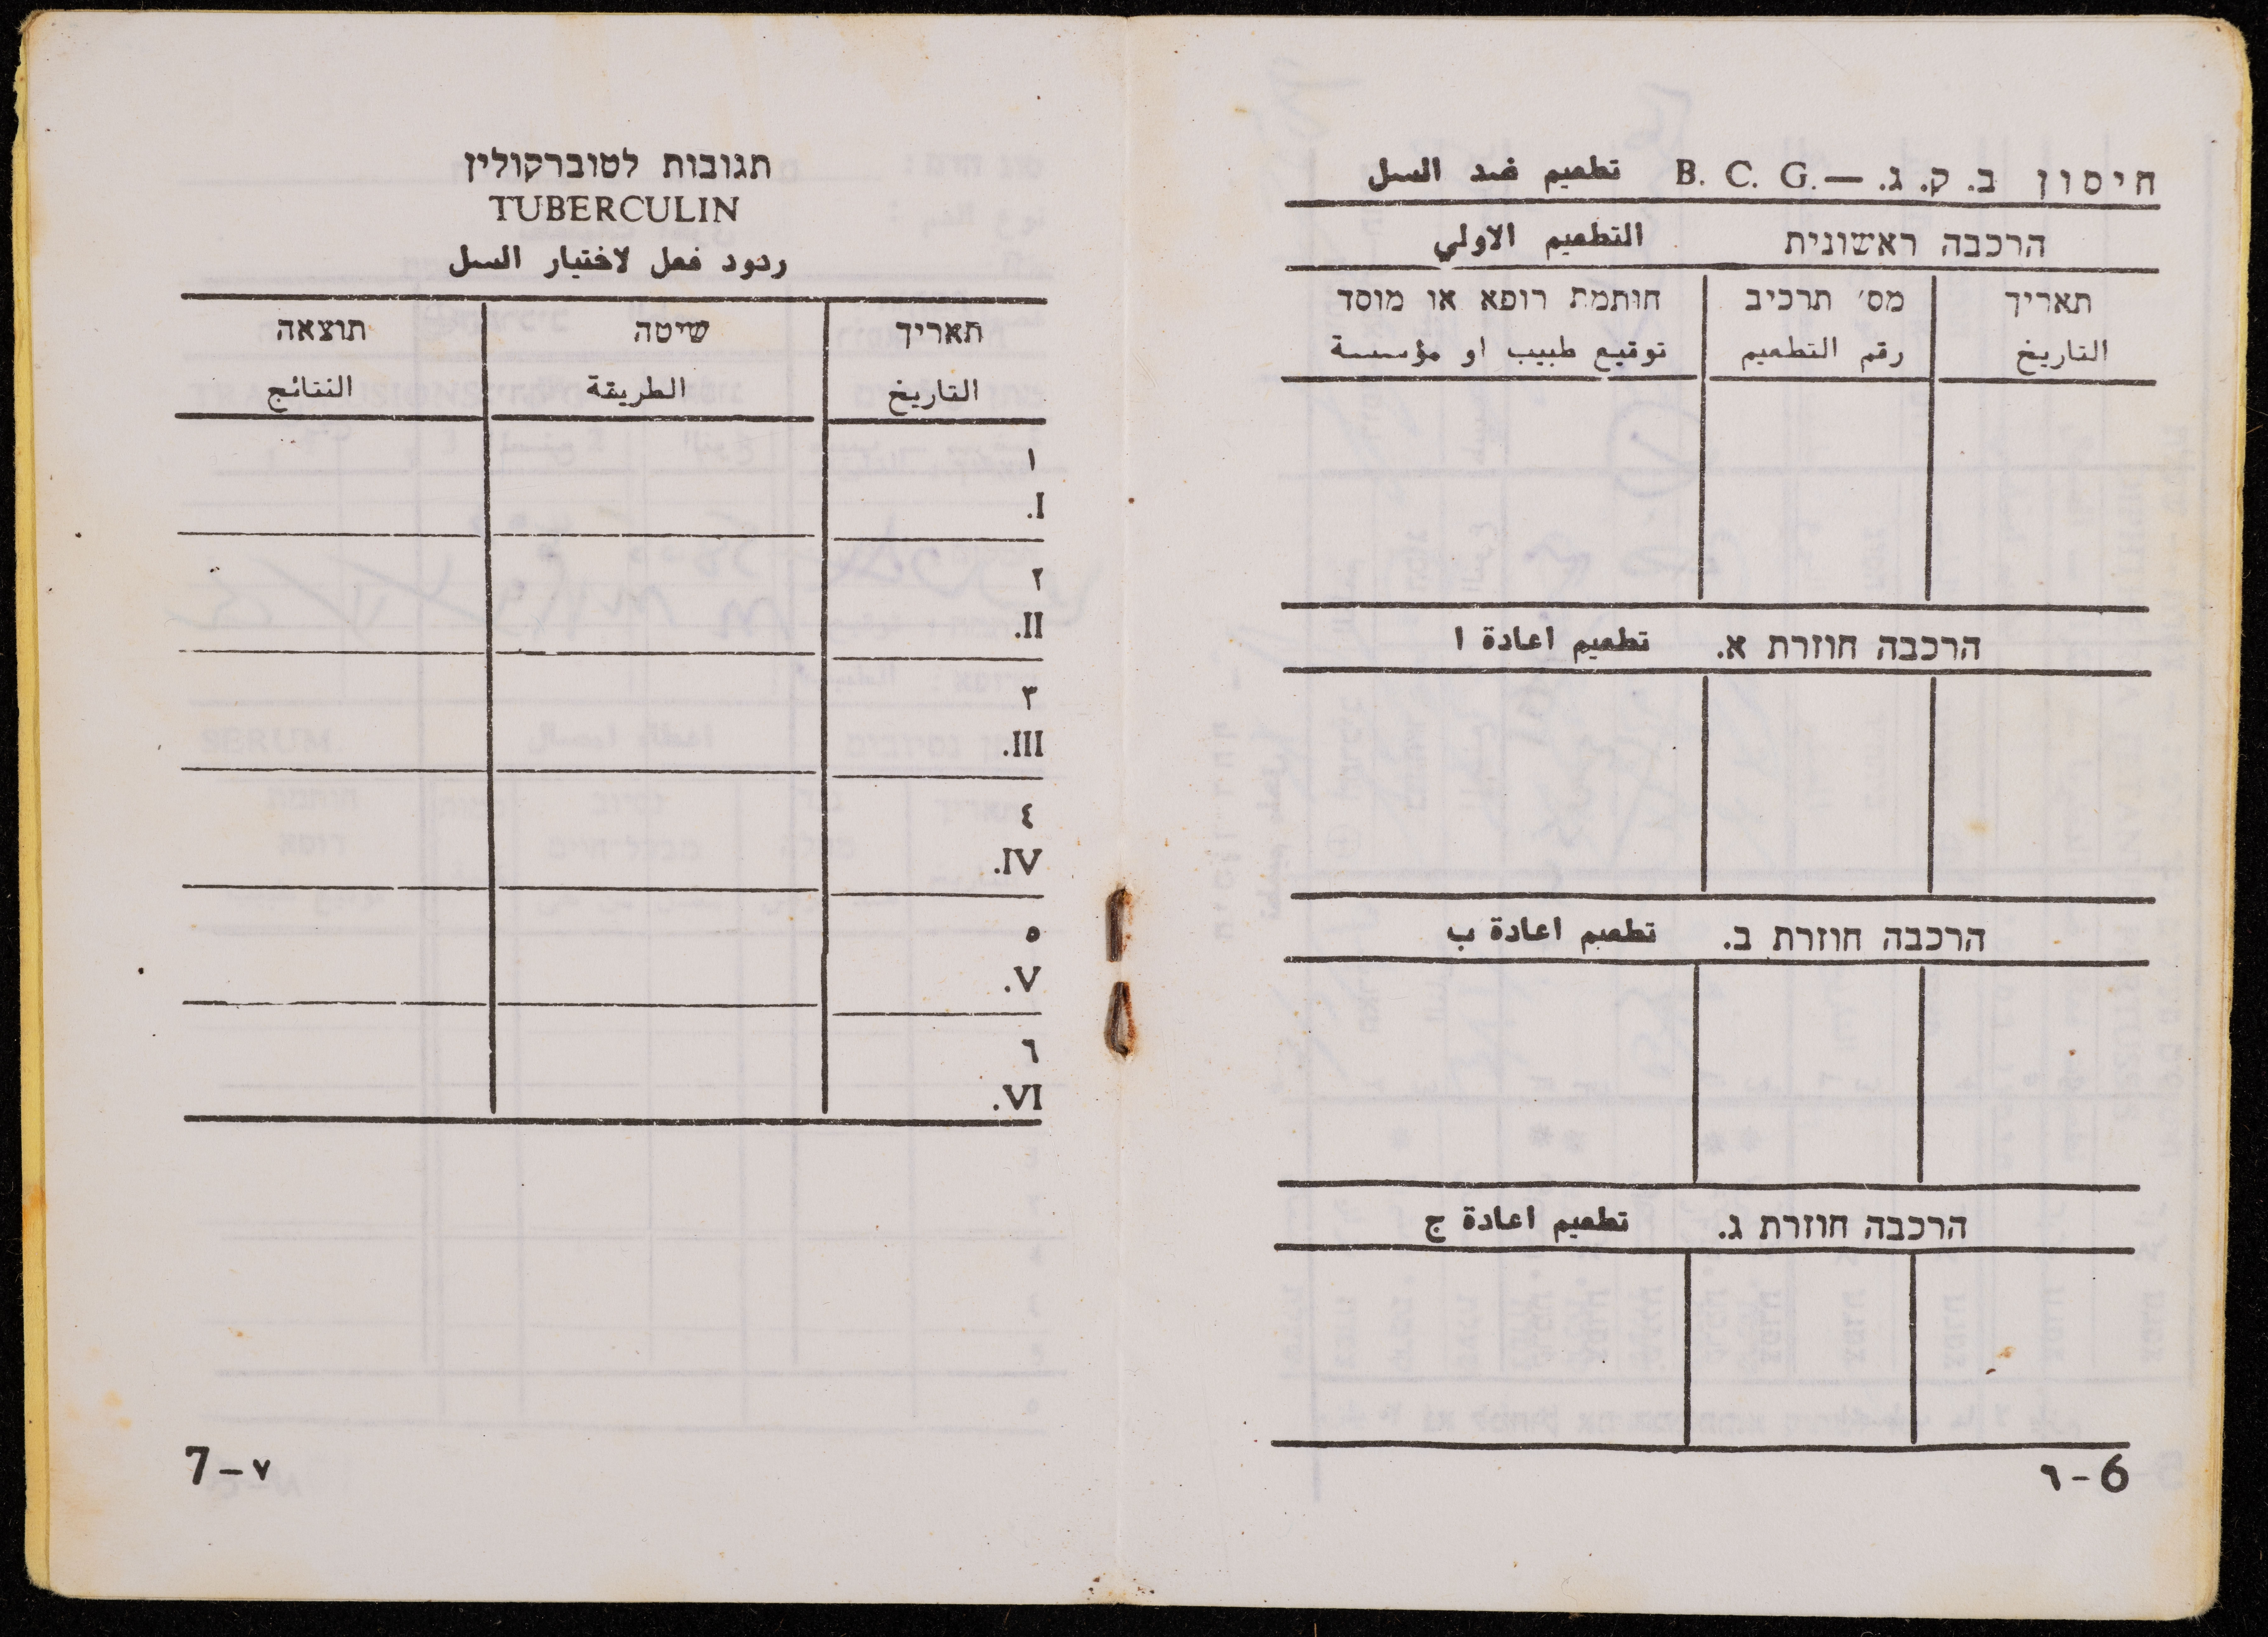 חיסון ב. ק. ג. — .B. C. G تطعيم ضد السل
הרכבה ראשונית التطعيم الاولي
תאריך מס׳ תרכיב חותמת רופא או מוסד
التاريخ رقم التطعيم توقيع طبيب او مؤسسة
הרכבה חוזרת א. تطعيم اعادة ا
הרכבה חוזרת ב. تطعيم اعادة ب
הרכבה חוזרת ג. تطعيم اعادة ج
6-٦
תגובות לטוברקולין
TUBERCULIN
ردود فعل لاختبار السل
תאריך שיטה תוצאה
التاريخ الطريقة النتائج
١
I.
٢
II.
٣
III.
٤
IV.
٥
V.
٦
VI.
7-٧